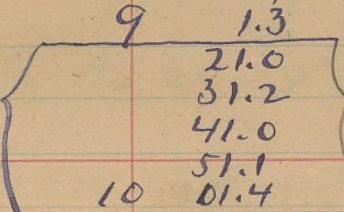 9 1.3
21.0
31.2
41.0
51.1
10 01.4